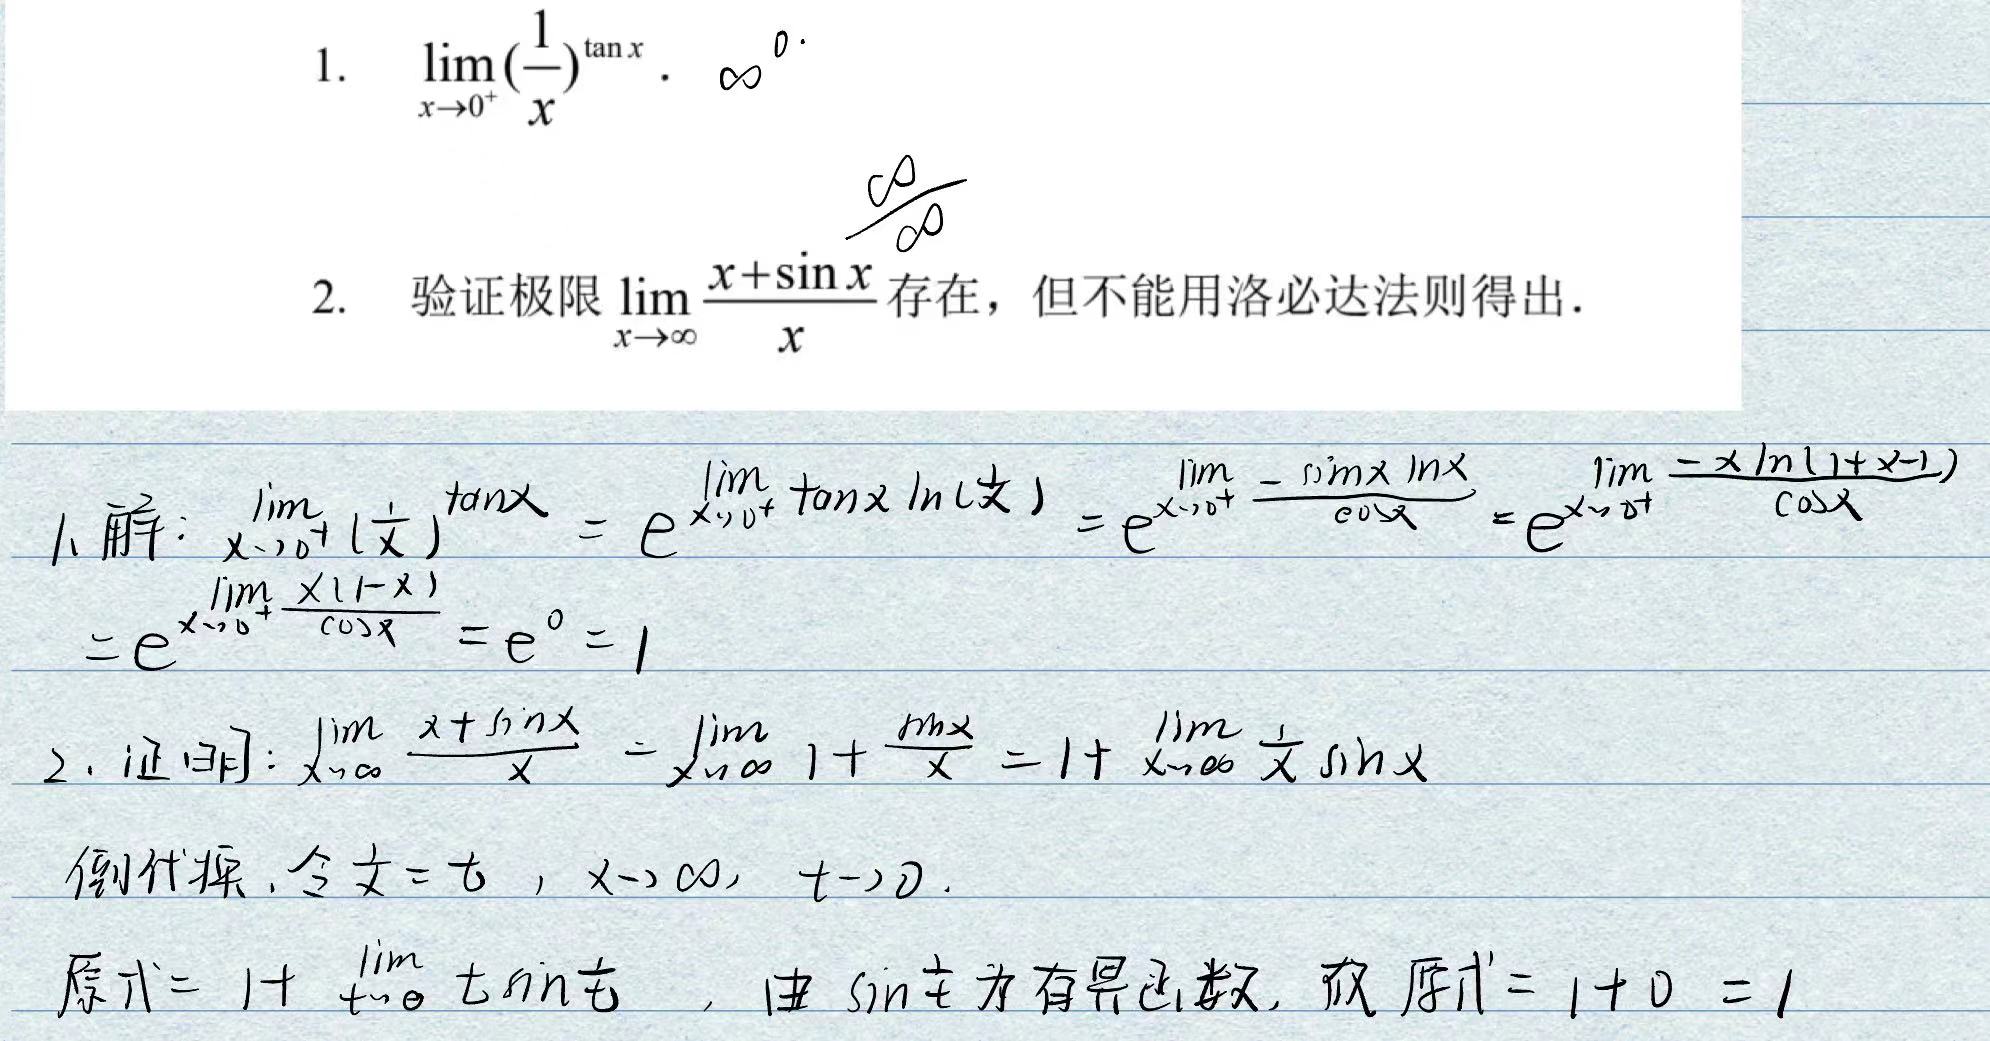 1. lim_{x→0⁺} (1/x)^{tan x} . ∞^0.
∞/∞
2. 验证极限 lim_{x→∞} (x+sin x)/x 存在，但不能用洛必达法则得出.
1、解: lim_{x→0⁺} (1/x)^{tanx} = e^{lim_{x→0⁺} tanx ln(1/x)} = e^{lim_{x→0⁺} (-sinx lnx)/cosx} = e^{lim_{x→0⁺} (-x ln(1+x-1))/cosx}
= e^{lim_{x→0⁺} x(1-x)/cosx} = e^0 = 1
2、证明: lim_{x→∞} (x+sinx)/x = lim_{x→∞} 1+ sinx/x = 1+ lim_{x→∞} 1/x sinx
倒代换，令 1/x = t , x→∞, t→0.
原式= 1+ lim_{t→0} t sin 1/t , 由 sin 1/t 为有界函数, 故 原式= 1+0 = 1